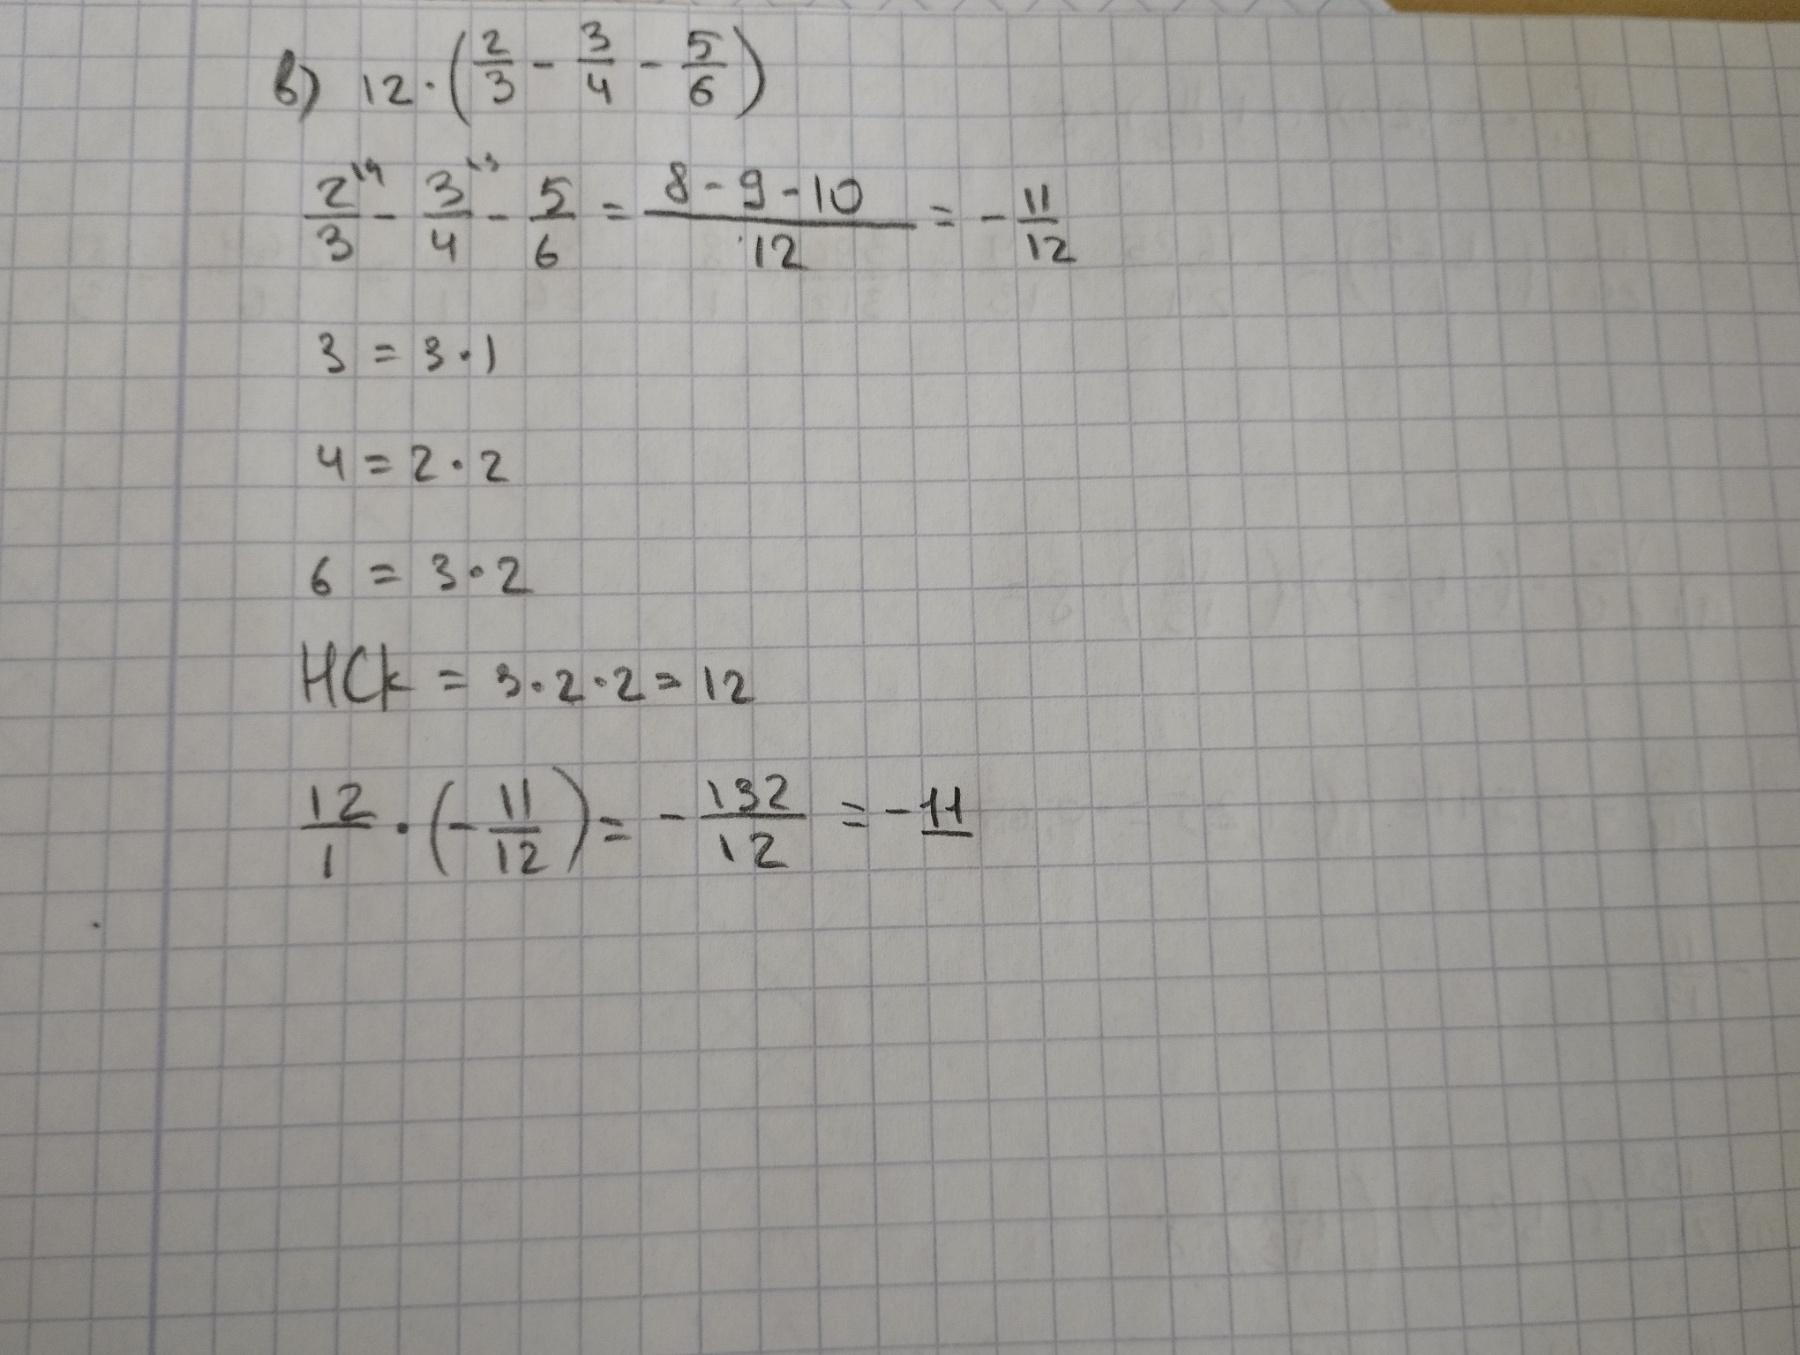 в) 12 · (2/3 - 3/4 - 5/6)
2\4/3 - 3\3/4 - 5/6 = 8-9-10/12 = - 11/12
3 = 3 · 1
4 = 2 · 2
6 = 3 · 2
НСК = 3 · 2 · 2 = 12
12/1 · (- 11/12) = - 132/12 = - 11